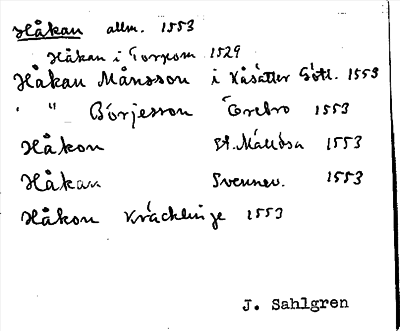 Håkan allm. 1553
Håkan i Torpom 1529
Håkan Månsson i Käsätter Götl. 1553
" " Börjesson Örebro 1553
Håkon St. Mällösa 1553
Håkan Svennev. 1553
Håkon Kräcklinge 1553
J. Sahlgren